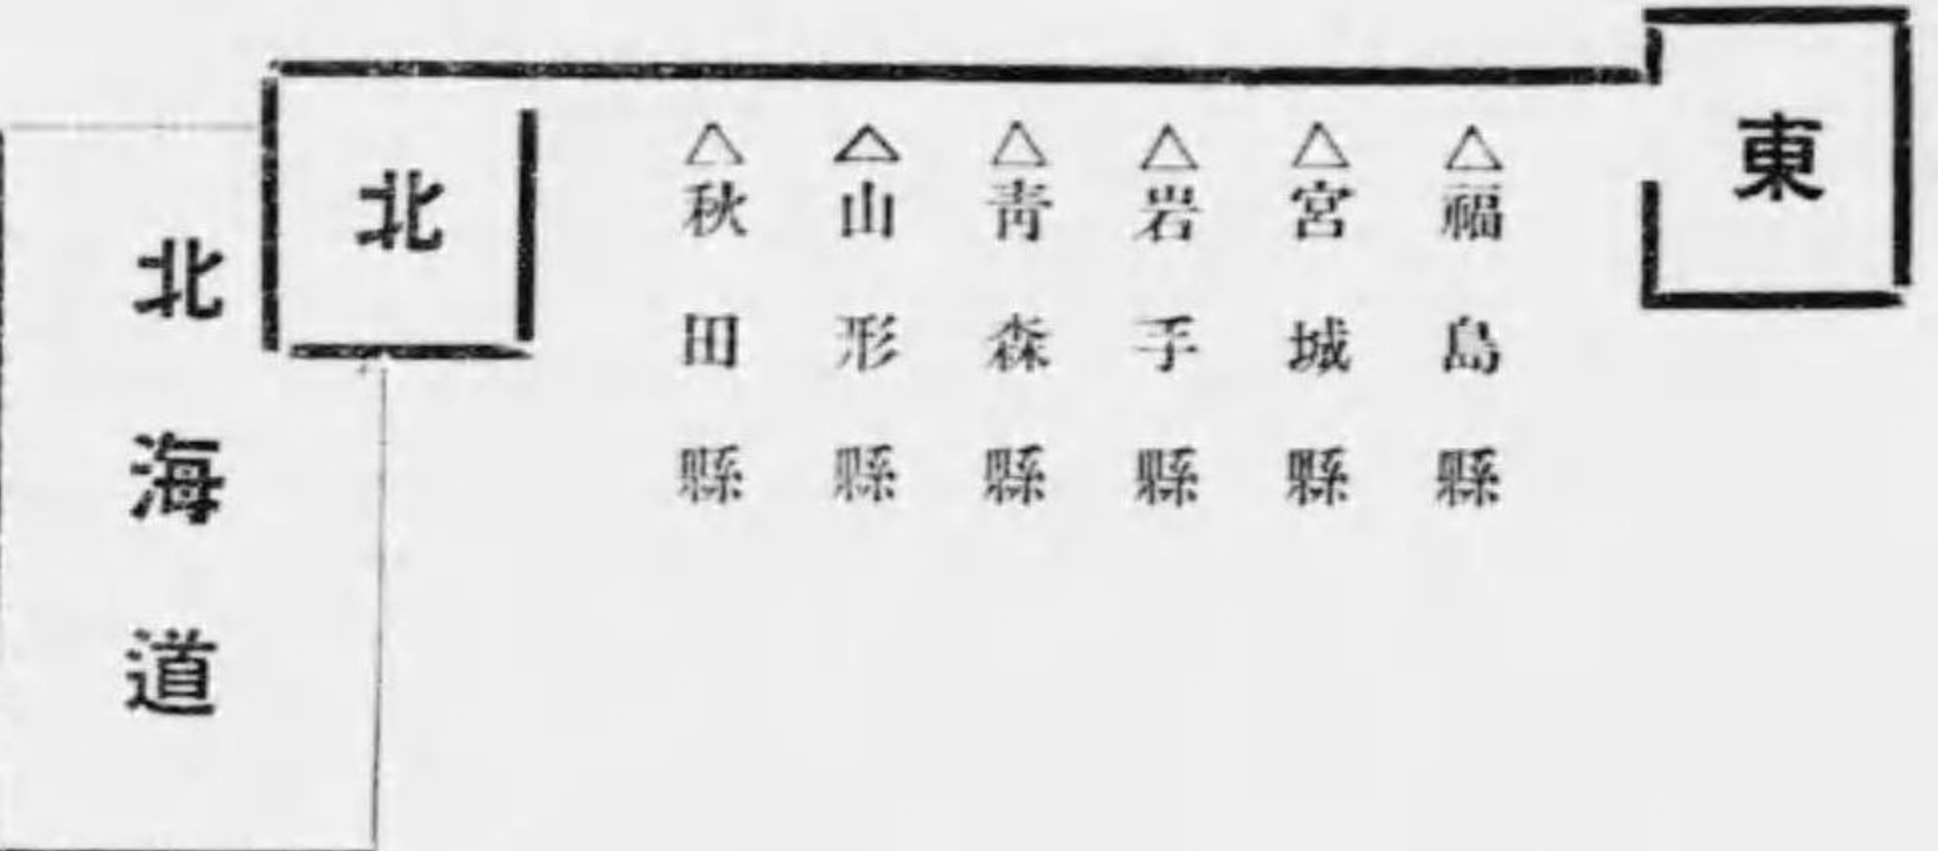 東北
△福島縣
△宮城縣
△岩手縣
△靑森縣
△山形縣
△秋田縣
北海道